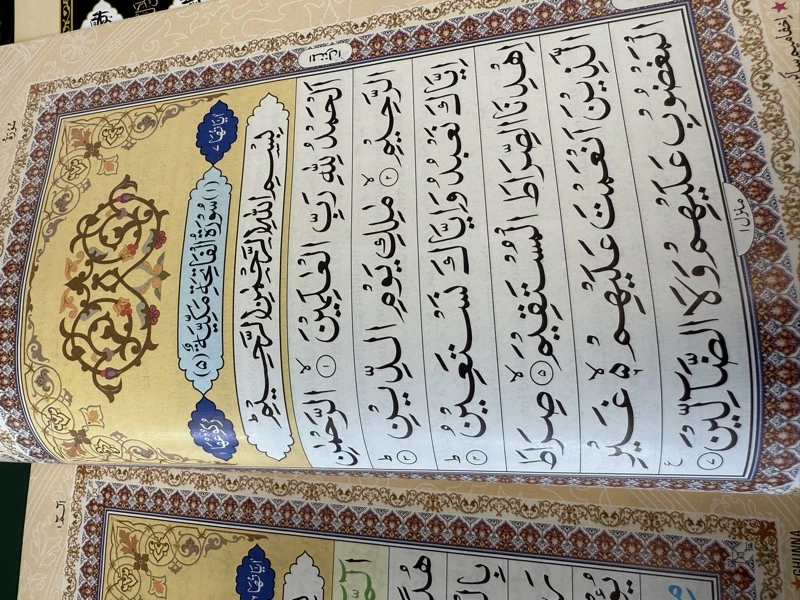 اٰيَاتُهَا ٧
(١) سُوْرَةُ الْفَاتِحَةِ مَكِّيَّةٌ (٥)
رُكُوْعُهَا
بِسْمِ اللّٰهِ الرَّحْمٰنِ الرَّحِيْمِ
اَلْحَمْدُ لِلّٰهِ رَبِّ الْعٰلَمِيْنَ ۙ ١ الرَّحْمٰنِ
الرَّحِيْمِ ۙ ٢ مٰلِكِ يَوْمِ الدِّيْنِ ؕ ٣
اِيَّاكَ نَعْبُدُ وَاِيَّاكَ نَسْتَعِيْنُ ؕ ٤
اِهْدِنَا الصِّرَاطَ الْمُسْتَقِيْمَ ۙ ٥ صِرَاطَ
الَّذِيْنَ اَنْعَمْتَ عَلَيْهِمْ ۙ۬ ۵ غَيْرِ
الْمَغْضُوْبِ عَلَيْهِمْ وَلَا الضَّآلِّيْنَ ٧
مَنْزِل ١
اٰيَاتُهَا
الٓمّٓ
GHUNNA